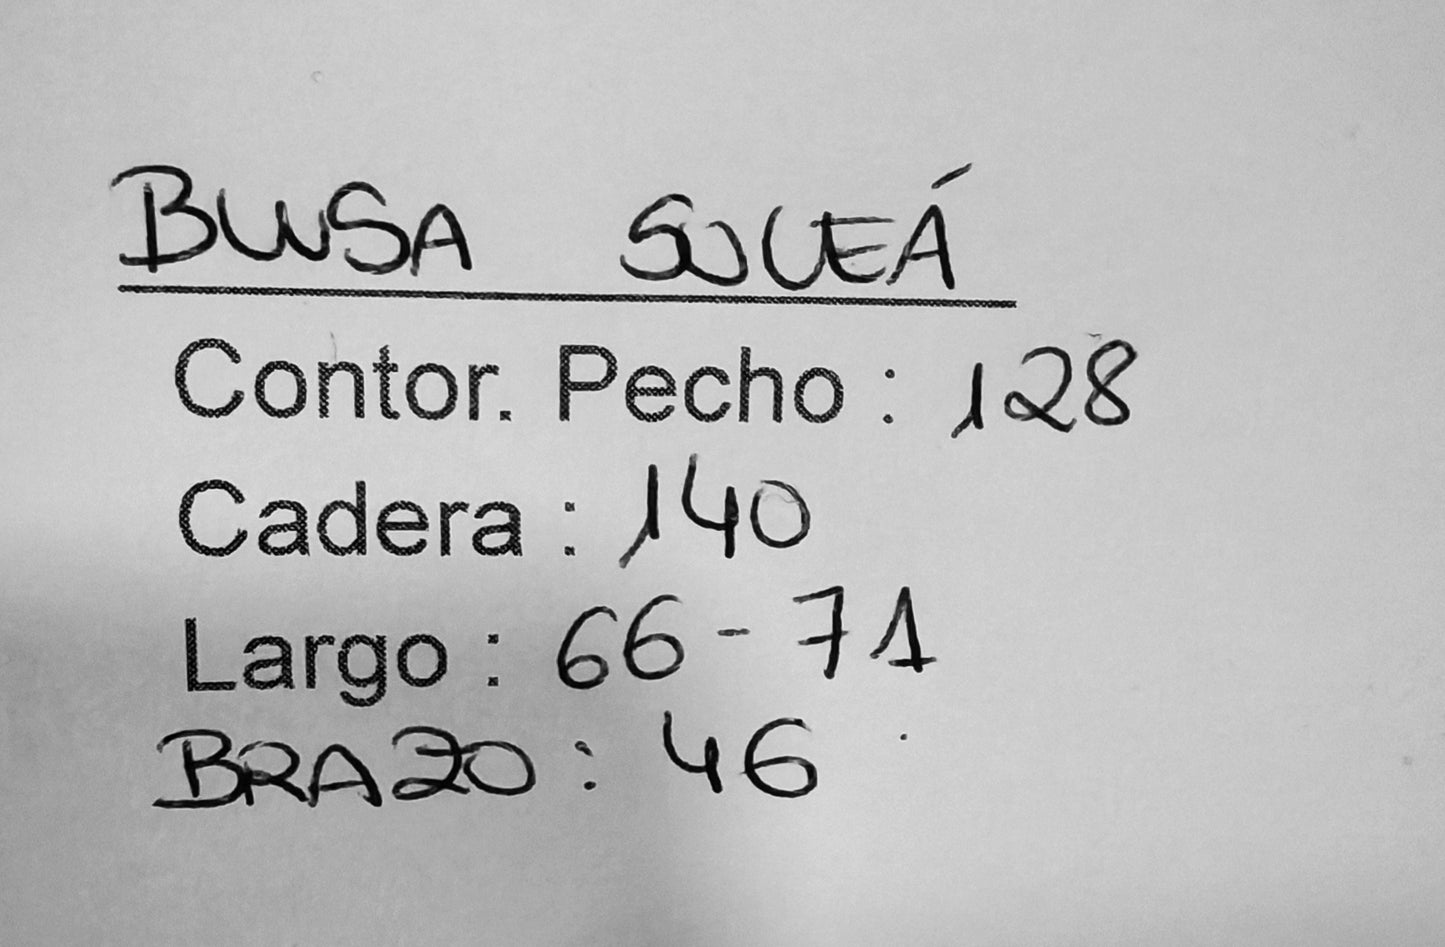 BLUSA SOLEÁ
Contor. Pecho : 128
Cadera : 140
Largo : 66-71
BRAZO : 46